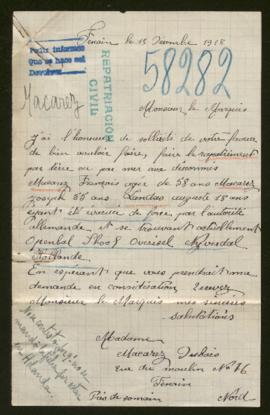 Fenain le 15 Décembre 1918
Pedir informes
Que se hace sel
Devolver
58282
REPATRIACIÓN
CIVIL
Macarez
Monsieur le Marquis
J'ai l'honneur de solliciter de votre faveur
de bien vouloir faire, faire le rapatriement
par terre ou par mer aux dénommés
Macarez François agé de 58 ans Macarez
Joseph 35 ans Auguste 18 ans
ayant été évacué de force, par l'autorité
allemande et se trouvant actuellement
Hollande
En espérant que vous prendrait ma
demande en considération Recevez
Monsieur le Marquis mes sincères
salutations
Madame
Macarez Dubois
rue du moulin No 46
Fenain
Près de somain Nord